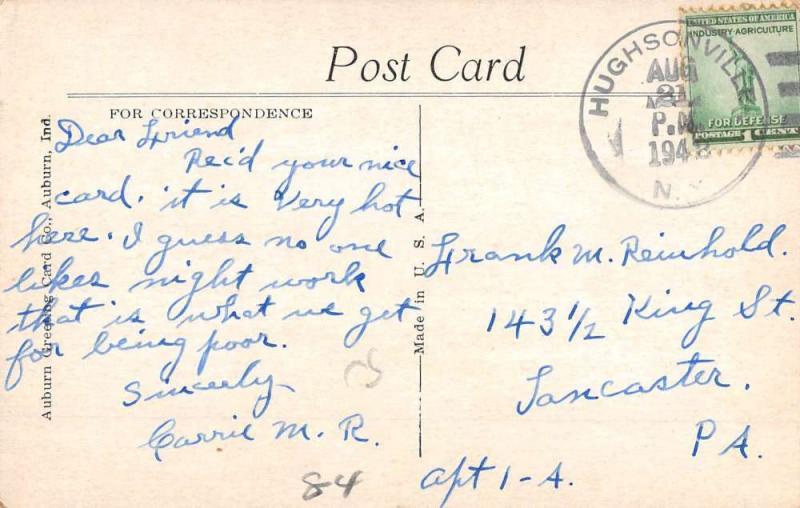 Post Card
FOR CORRESPONDENCE
Dear Friend
Rec'd your nice
card. it is Very hot
here. I guess no one
likes night work
that is what we get
for being poor.
Sincerly
Carrie M. R.
84
Auburn Greeting Card Co., Auburn, Ind.
Made in U. S. A.
HUGHSONVILLE
AUG
21
P.M.
194
N.Y.
UNITED STATES OF AMERICA
INDUSTRY·AGRICULTURE
FOR DEFENSE
POSTAGE 1 CENT
Frank M. Reinhold.
143 1/2 King St.
Lancaster.
PA.
apt 1-A.